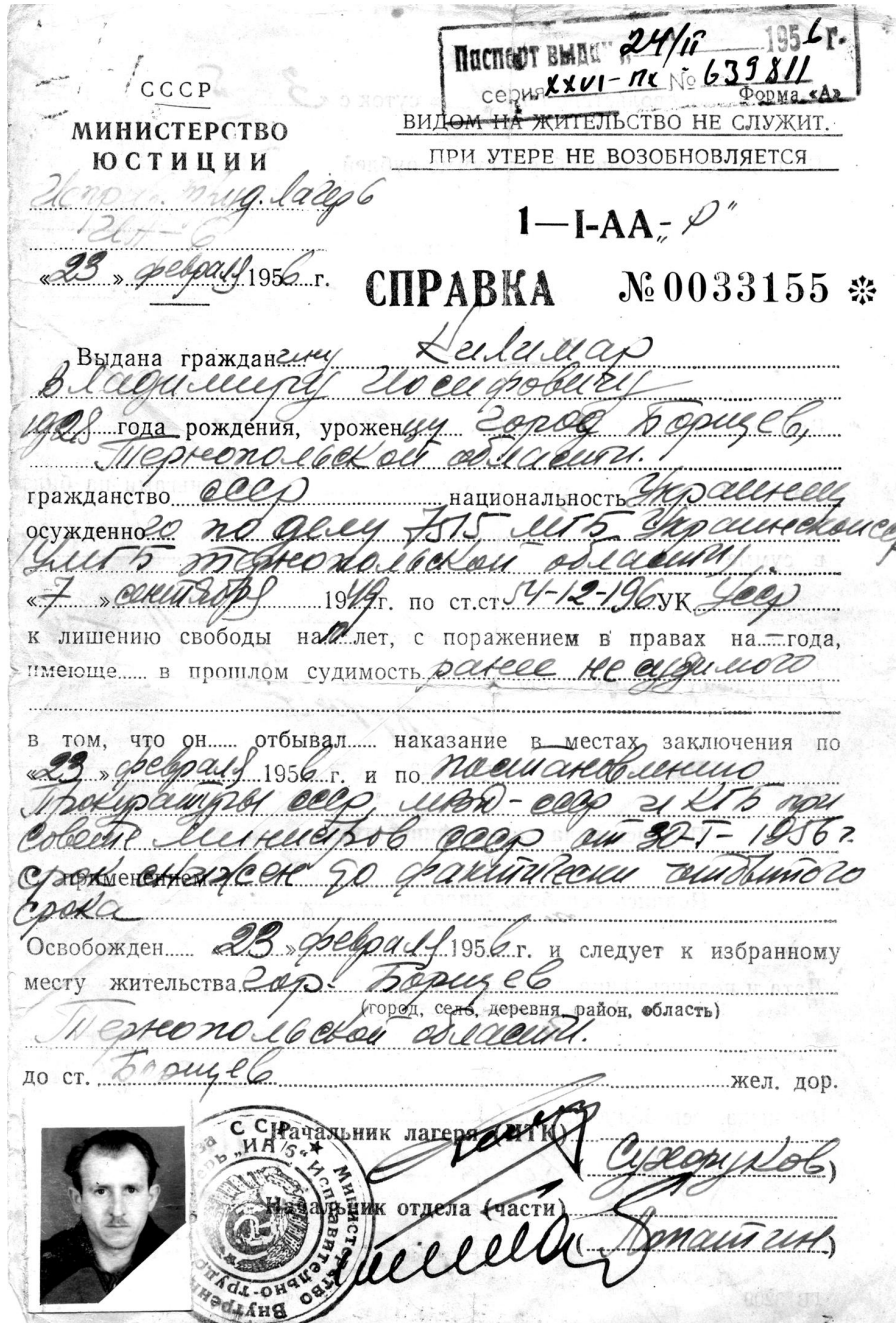 Паспорт выдан "24/II 1956 г.
серия XXVI-ПК № 639811
Форма «А»
СССР
МИНИСТЕРСТВО
ЮСТИЦИИ
ВИДОМ НА ЖИТЕЛЬСТВО НЕ СЛУЖИТ.
ПРИ УТЕРЕ НЕ ВОЗОБНОВЛЯЕТСЯ
Исправ. труд. лагерь
«23» февраля 1956 г.
1—I-АА-„Р"
СПРАВКА № 0033155 *
Выдана гражданину Килимар
Владимиру Иосифовичу
1928 года рождения, уроженцу город Борщев,
Тернопольской области.
гражданство СССР национальность Украинец
осужденного по делу 7515 МГБ Украинской сср
УМГБ тернопольской области
«7» сентября 1949г. по ст.ст. 54-12-196 УК Усср
к лишению свободы на 10 лет, с поражением в правах на — года,
имеюще..... в прошлом судимость ранее не судимого
в том, что он..... отбывал..... наказание в местах заключения по
«23» февраля 1956 г. и по постановлению
Прокуратуры ссср, мвд-ссср и КГБ при
Совете министров ссср от 30-I-1956 г.
с применением снижен до фактически отбытого
срока
Освобожден..... «23» февраля 1956 г. и следует к избранному
месту жительства гор. Борщев
(город, село, деревня, район, область)
Тернопольской области.
до ст. Борщев жел. дор.
Начальник лагеря (ИТК)
(Сухоруков)
Начальник отдела (части)
(Лопатин)
ССР ★ Министерство Внутренн
лагерь „ИА/5" Исправительно-трудо